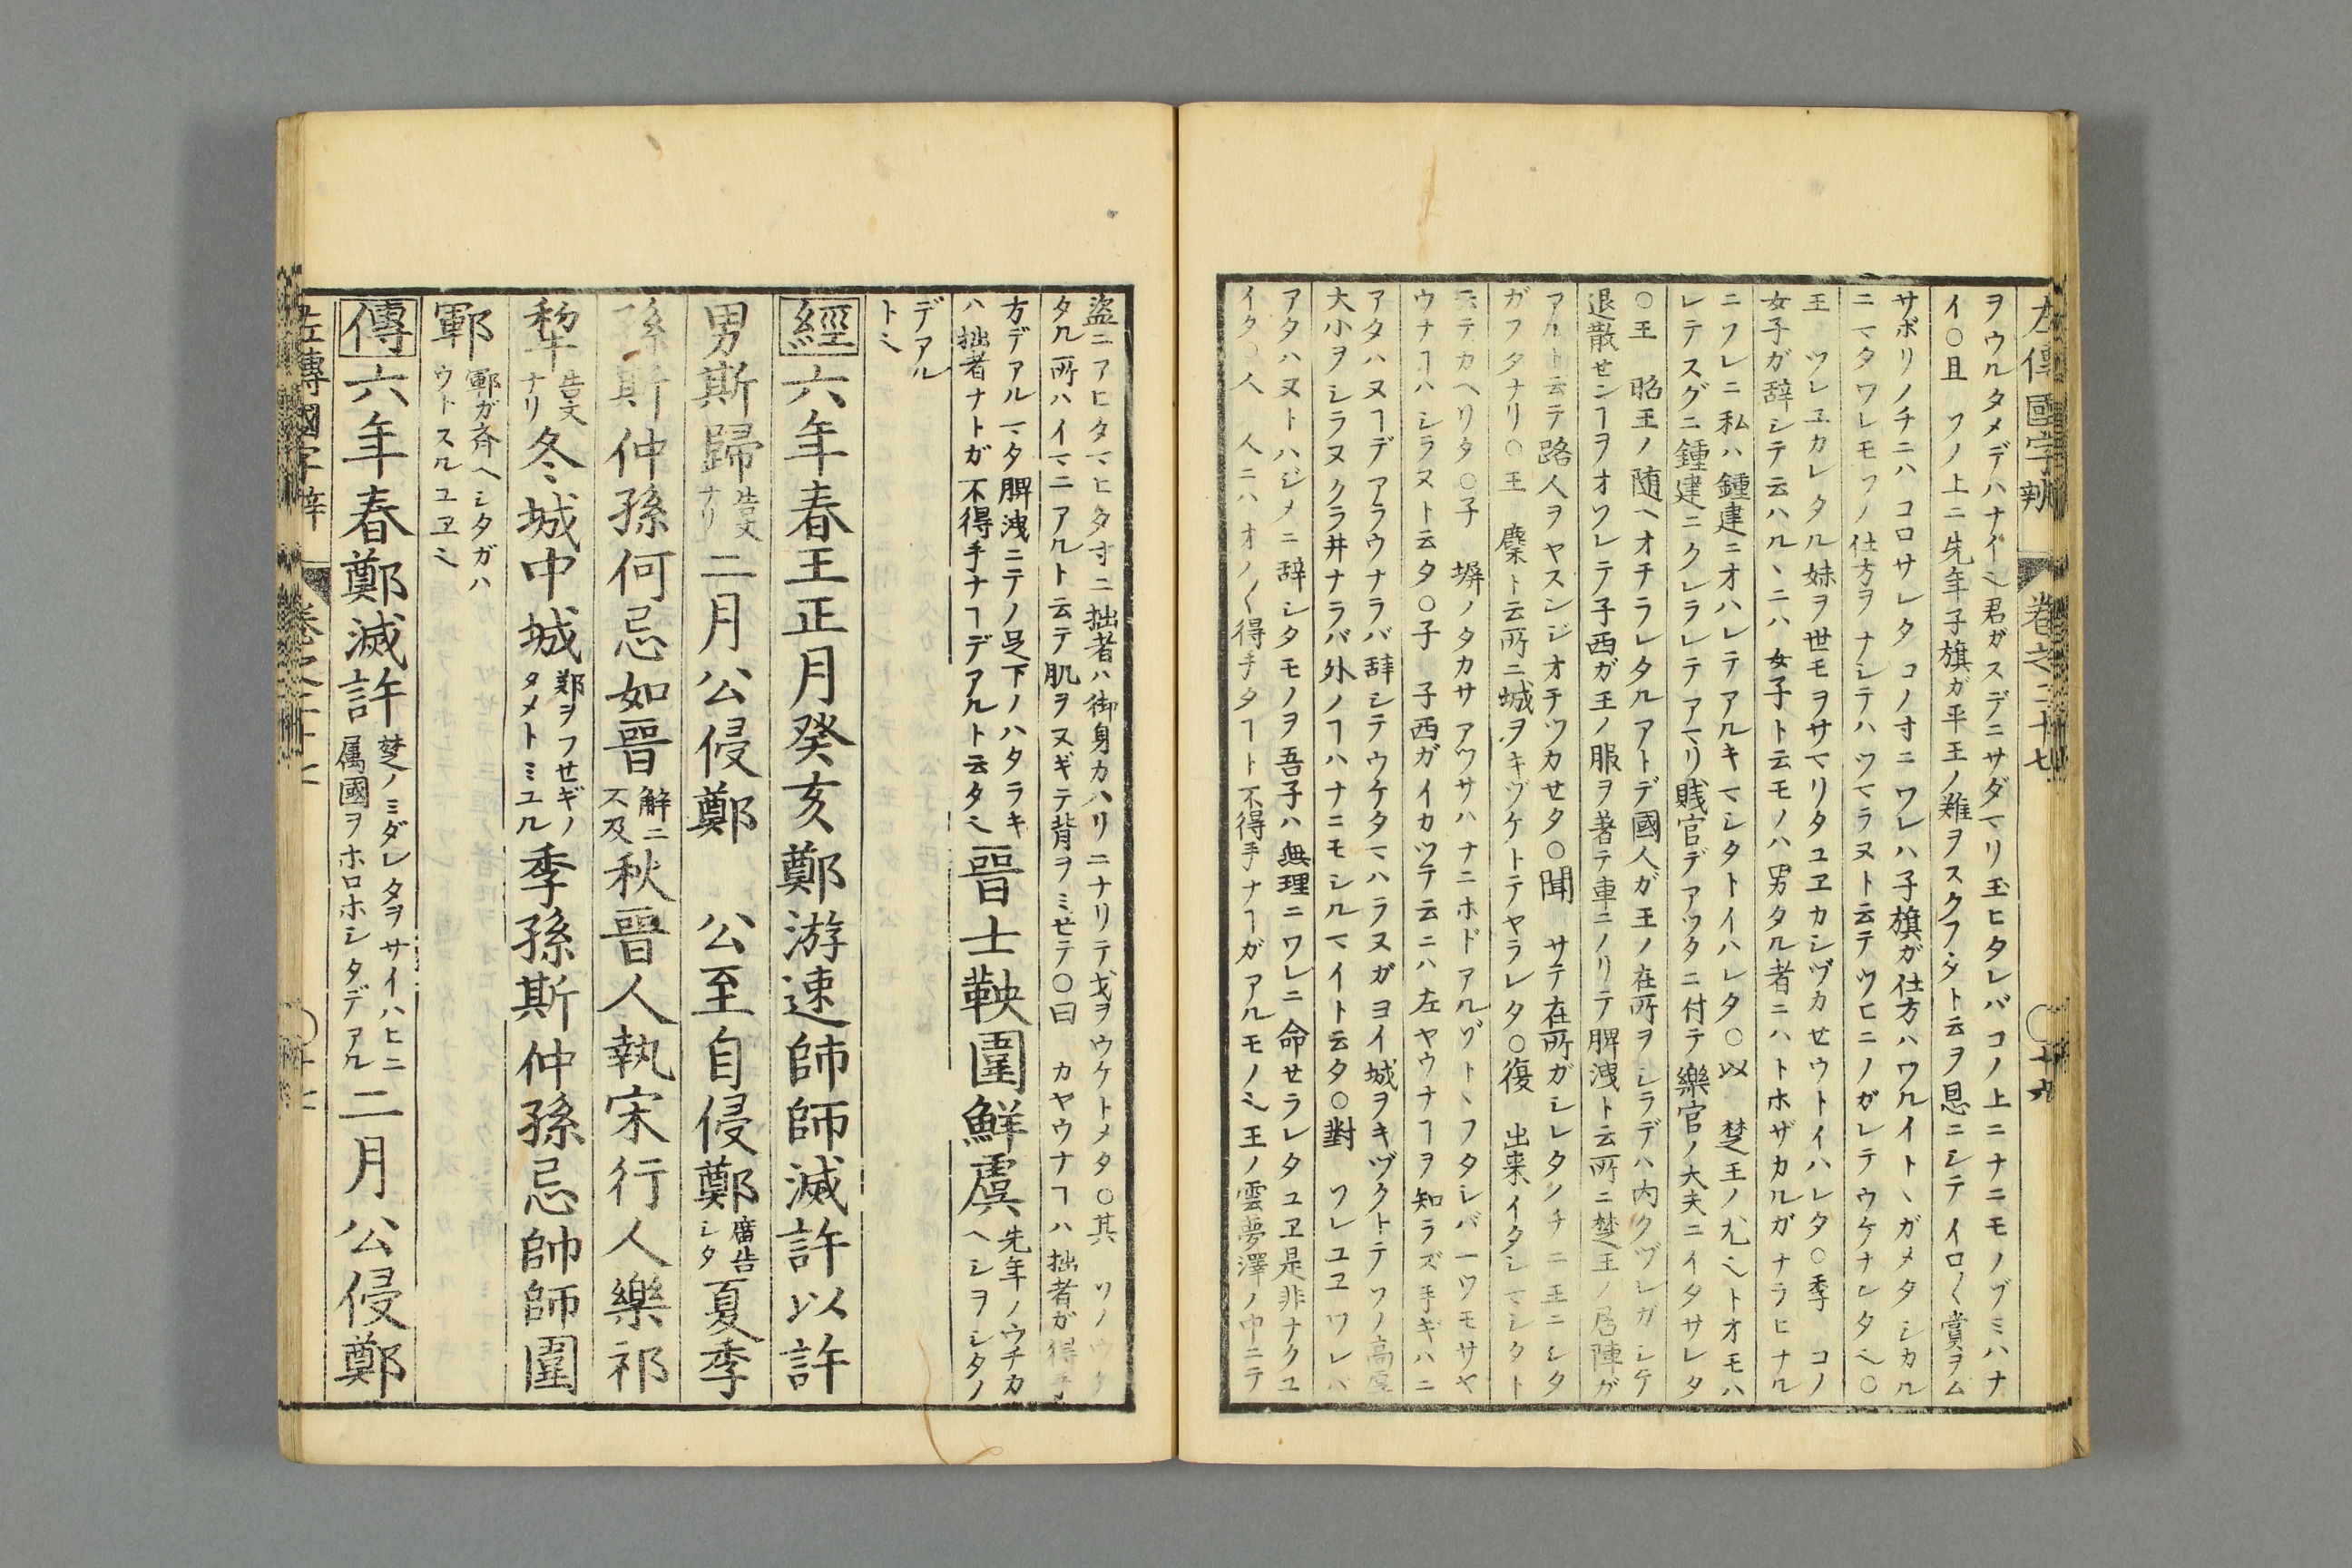 左傳國字辨 卷之二十七 十九
ヲウルタメデハナイ〻君ガスデニサダマリ玉ヒタレバコノ上ニナニモノゾミハナ
イ○且 ソノ上ニ先年子旗ガ平王ノ難ヲスクフタト云ヲ恩ニシテイロ〱賞ヲム
サボリノチニハ コロサレタ コノ寸ニワレハ子旗ガ仕方ハワルイトヽガメタ シカル
ニマタワレモソノ仕方ヲナシテハツマラヌト云テツヒニノガレテウケナシタ〻○
王 ツレユカレタル妹ヲ世モヲサマリタユヱカシヅカセウトイハレタ○季 コノ
女子ガ辞シテ云ハルヽニハ 女子ト云モノハ男タル者ニハトホザカルガナラヒナル
ニソレニ私ハ鍾建ニオハレテアルキマシタトイハレタ○以 楚王ノ尤〻トオモハ
レテスグニ鍾建ニクレラレテアマリ賎官デアツタニ付テ樂官ノ大夫ニイタサレタ
○王 昭王ノ随ヘオチラレタルアトデ國人ガ王ノ在所ヲシラデハ内クヅレガシテ
退散センヿヲオソレテ子西ガ王ノ服ヲ著テ車ニノリテ脾洩ト云所ニ楚王ノ居陣ガ
アルト云テ路人ヲヤスンジオチツカせタ○聞 サテ在所ガシレタノチニ王ニシタ
ガフタナリ○王 麇ト云所ニ城ヲキヅケトテヤラレタ○復 出来イタシマシタト
云テカヘリタ○子 塀ノタカサ アツサハナニホドアルゾトヽフタレバ一ツモサヤ
ウナヿハシラヌト云タ○子 子西ガイカツテ云ニハ左ヤウナヿヲ知ラズ手ギハニ
アタハヌヿデアラウナラバ辞シテウケタマハラヌガヨイ城ヲキヅクトテソノ高厚
大小ヲシラヌクラ井ナラバ外ノヿハナニモシルマイト云タ○對 ソレユヱワレバ
アタハヌトハジメニ辞シタモノヲ吾子ハ無理ニワレニ命せラレタユヱ是非ナクユ
イタ○人 人ニハオノ〱得手タヿト不得手ナヿガアルモノ〻王ノ雲夢澤ノ中ニテ
盗ニアヒタマヒタ寸ニ拙者ハ御身カハリニナリテ戈ヲウケトメタ○其 ソノウケ
タル所ハイマニアルト云テ肌ヲヌギテ背ヲミせテ○曰 カヤウナヿハ拙者ガ得手
方デアルマタ脾洩ニテノ足下ノハタラキ
ハ拙者ナトガ不得手ナヿデアルト云タ〻
晉士鞅圍鮮虞
先年ノウチカ
ヘシヲシタノ
デアル
ト〻
經六年春王正月癸亥鄭游速帥師滅許以許
男斯歸
告文
ナリ
二月公侵鄭 公至自侵鄭
廣告
シタ
夏季
孫斯仲孫何忌如晉
解ニ
不及
秋晉人執宋行人樂祁
犂
告文
ナリ
冬城中城
鄭ヲフせギノ
タメトミユル
季孫斯仲孫忌帥師圍
鄆
鄆ガ斉ヘシタガハ
ウトスルユヱ〻
傳六年春鄭滅許
楚ノミダレタヲサイハヒニ
属國ヲホロホシタデアル
二月公侵鄭